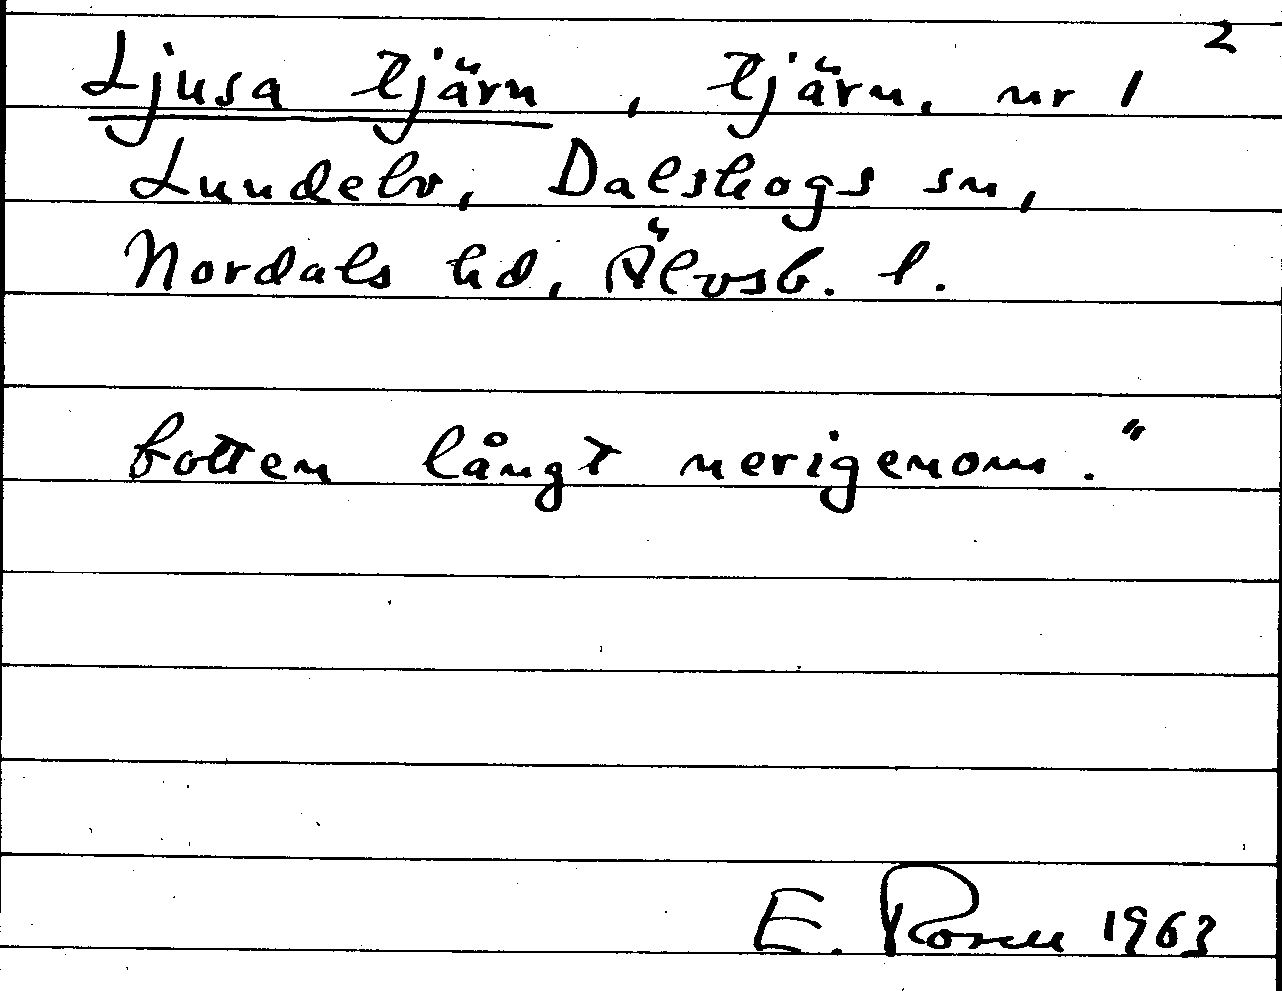 2
Ljusa tjärn, tjärn, nr 1
Lundebo, Dalskogs sn,
Nordals hd, Älvsb. l.
botten långt nerigenom."
E. Rosen 1963